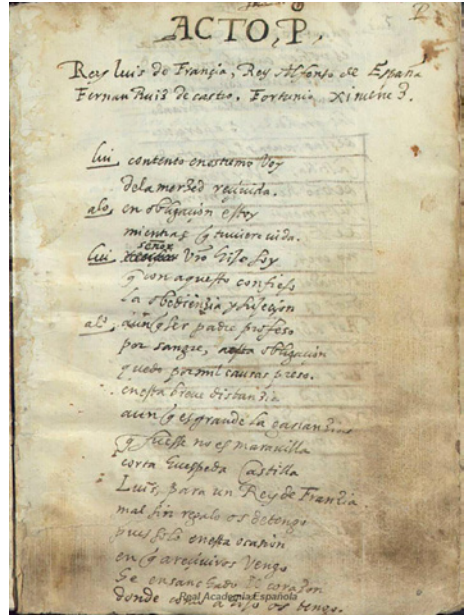 ACTO, P,
Rey luis de Françia, Rey Alfonso de España
Fernan Ruiz de castro. Fortunio, Ximene 3.
lui, contento enestremo Voy
dela merzed reziuida.
alo, en obligazion estoy
mientras q tuuiere uida.
señor
lui, Vro Hijo soy
q con aquesto confieso
la obedienzia y sujezion
alo, aunq ser padre profeso
por sangre, aesta obligazion
quedo por mil causas preso.
enesta breue distanzia
aunq es grande la
q fuesse no es marauilla
corta huespeda Castilla
Luis, para un Rey de Franzia.
mal sin regalo os detengo
pues solo enesta ocasion
en q areziuiros Vengo
se ensanchado el corazon
donde como a hijo os tengo.
Real Academia Española